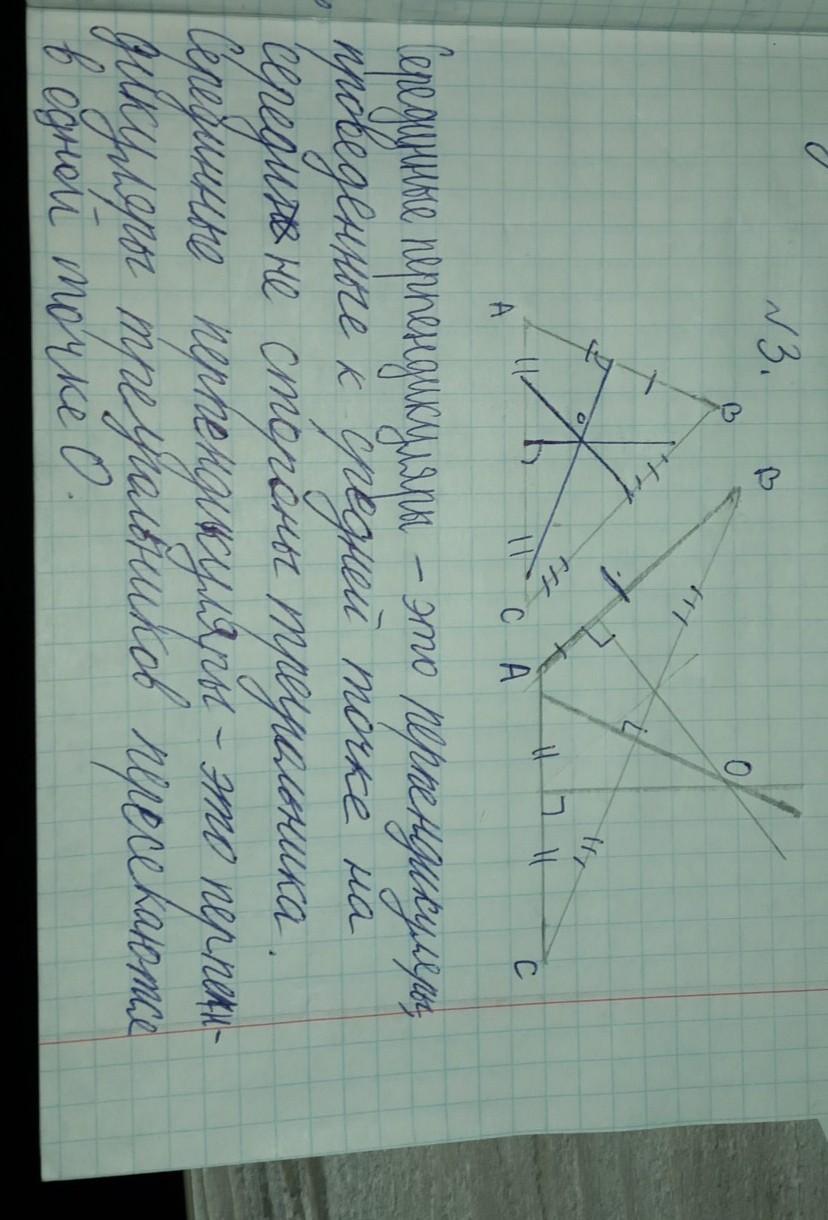 №3.
B
A
O
C
B
A
O
C
Серединные перпендикуляры – это перпендикуляры,
проведенные к средней точке на
середине не стороны треугольника.
Серединные перпендикуляры – это перпен-
дикуляры треугольников пересекаются
в одной точке О.